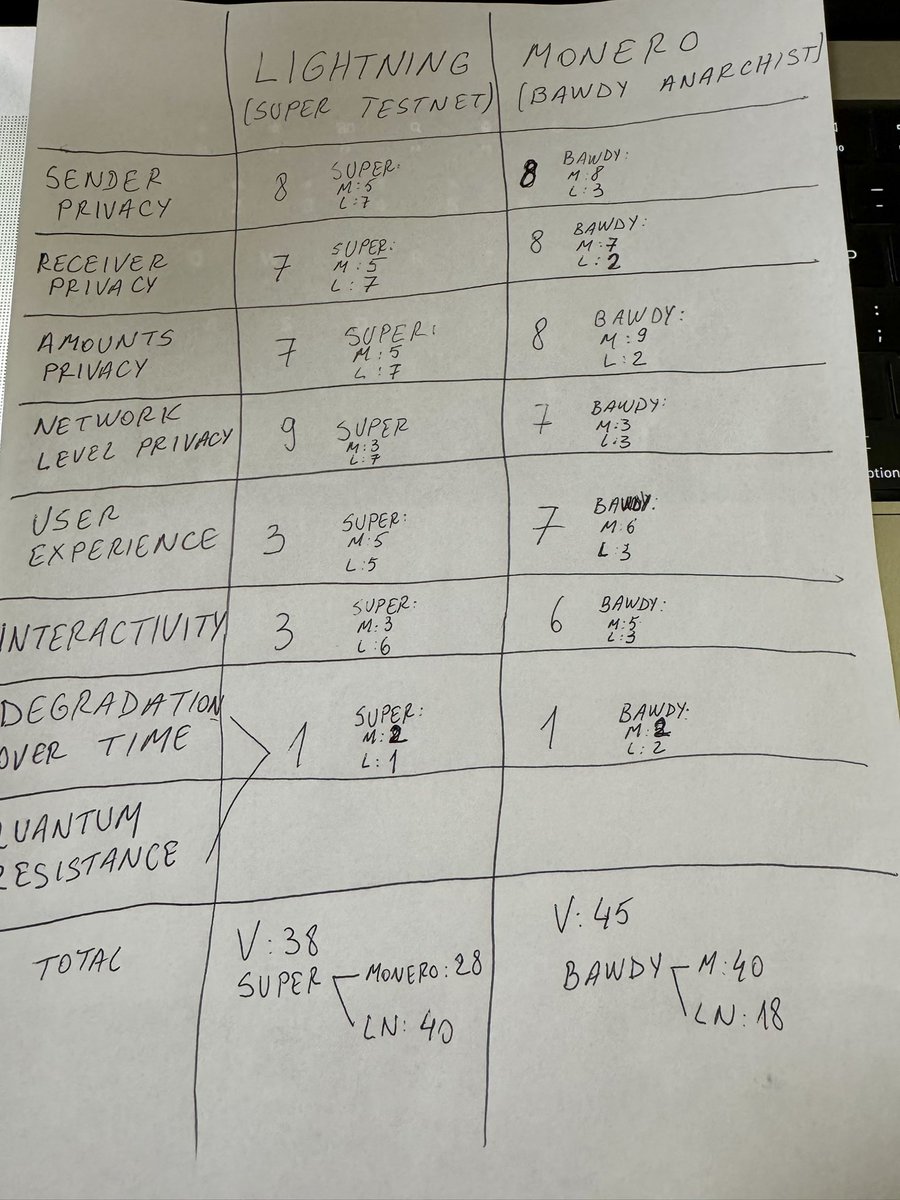 LIGHTNING
(SUPER TESTNET)
MONERO
(BAWDY ANARCHIST)
SENDER
PRIVACY
8
SUPER:
M:5
L:7
8
BAWDY:
M:8
L:3
RECEIVER
PRIVACY
7
SUPER:
M:5
L:7
8
BAWDY:
M:7
L:2
AMOUNTS
PRIVACY
7
SUPER:
M:5
L:7
8
BAWDY:
M:9
L:2
NETWORK
LEVEL PRIVACY
9
SUPER
M:3
L:7
7
BAWDY:
M:3
L:3
USER
EXPERIENCE
3
SUPER:
M:5
L:5
7
BAWDY:
M:6
L:3
INTERACTIVITY
3
SUPER:
M:3
L:6
6
BAWDY:
M:5
L:3
DEGRADATION
OVER TIME
1
SUPER:
M:2
L:1
1
BAWDY:
M:2
L:2
QUANTUM
RESISTANCE
TOTAL
V:38
SUPER MONERO:28
LN:40
V:45
BAWDY M:40
LN:18
option